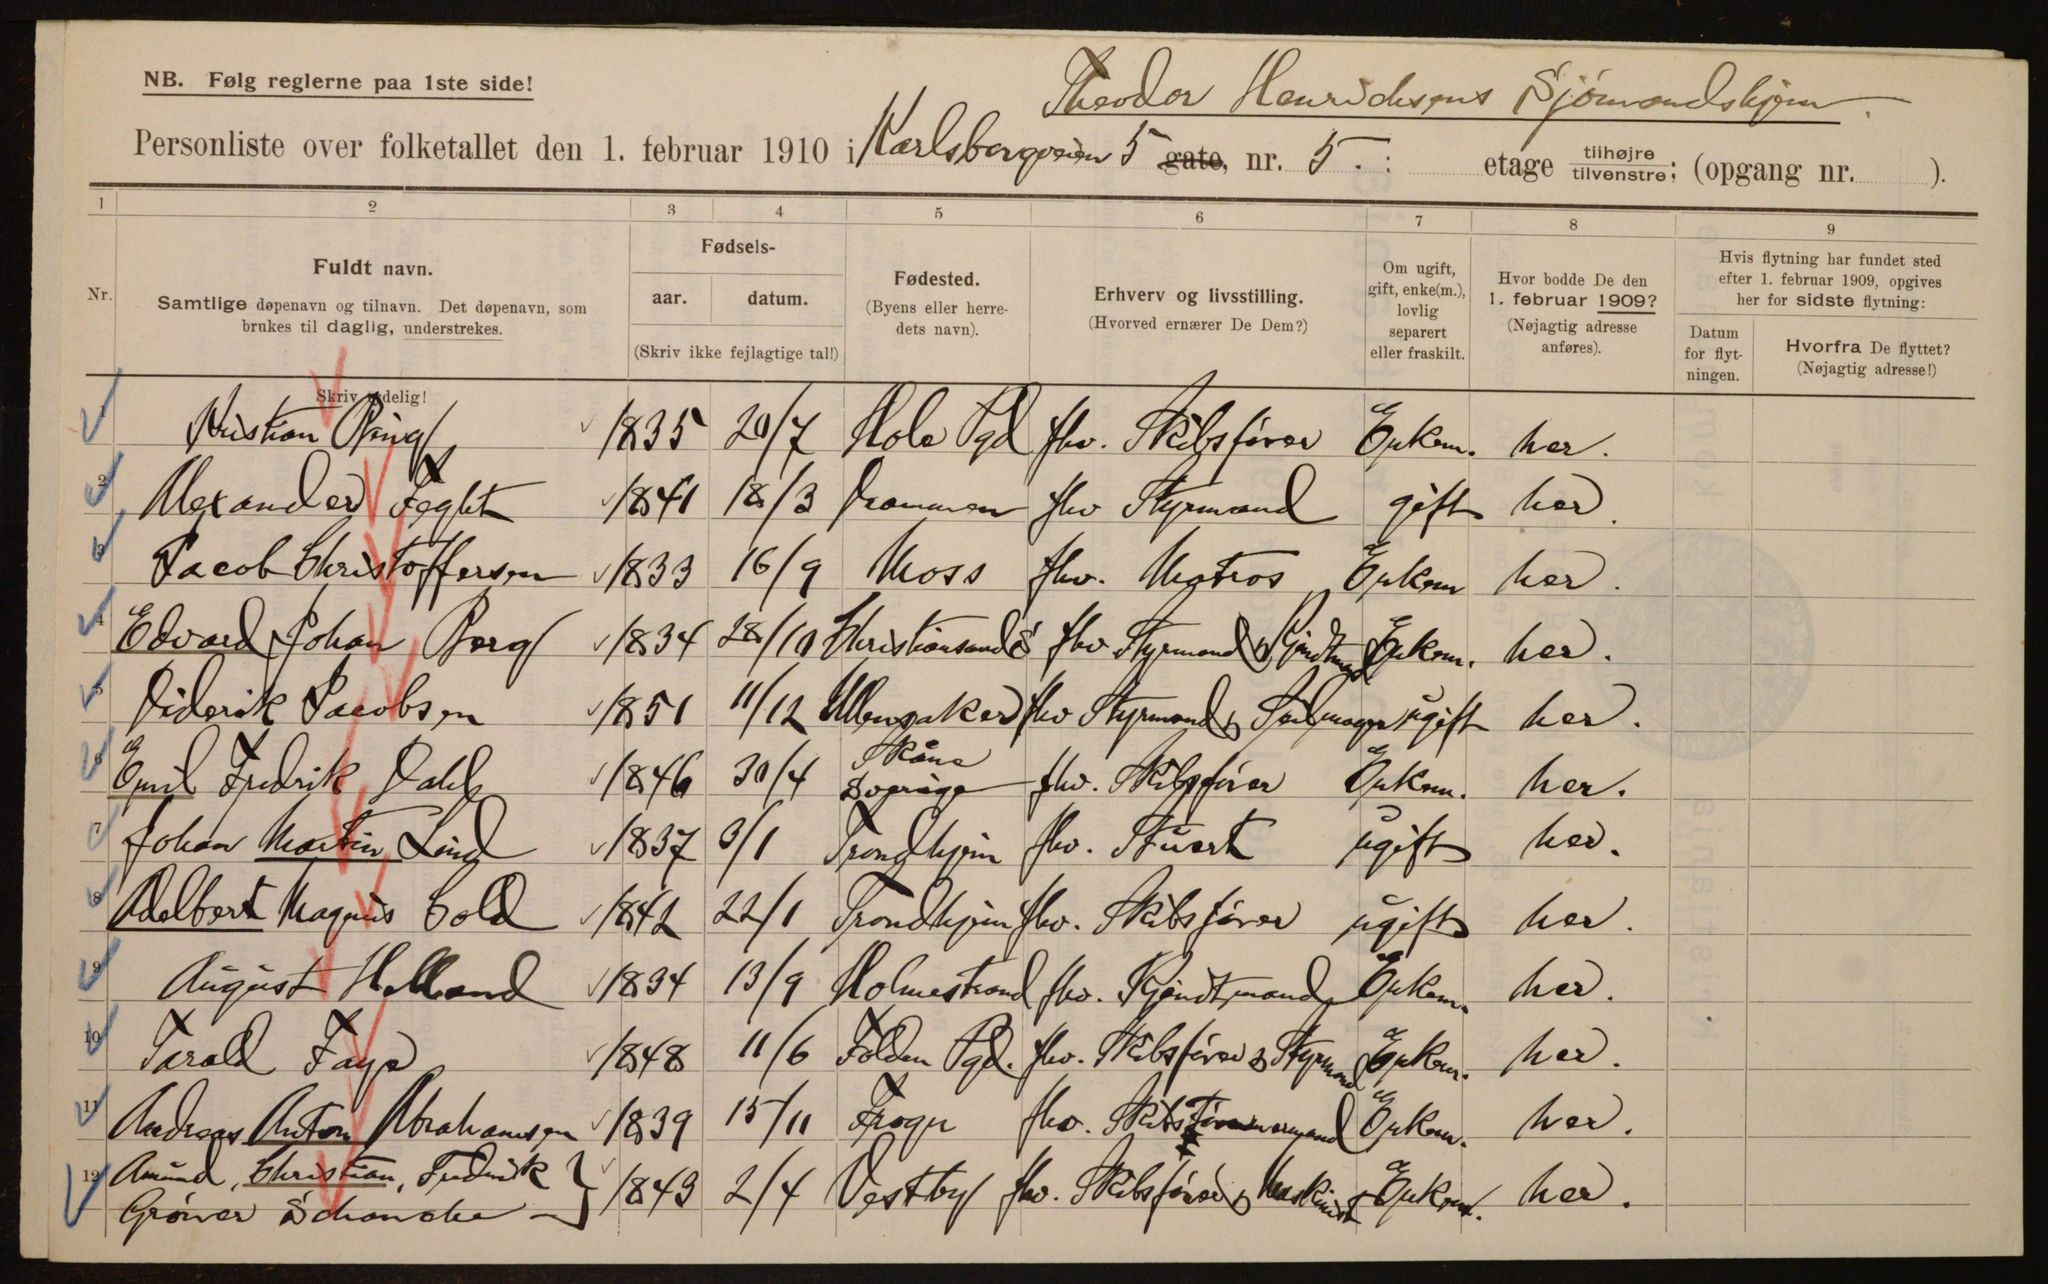 NB. Følg reglerne paa 1ste side!
Theodor Henrichsens Sjømandshjem.
Personliste over folketallet den 1. februar 1910 i Karlsborgveien 5 gate, nr. 5. : etage tilhøjre tilvenstre; (opgang nr. ).
1 2 3 4 5 6 7 8 9
Nr.
Fuldt navn.
Samtlige døpenavn og tilnavn. Det døpenavn, som
brukes til daglig, understrekes.
Skriv tydelig!
Fødsels-
aar. datum.
(Skriv ikke fejlagtige tal!)
Fødested.
(Byens eller herre-
dets navn).
Erhverv og livsstilling.
(Hvorved ernærer De Dem?)
Om ugift,
gift, enke(m.),
lovlig
separert
eller fraskilt.
Hvor bodde De den
1. februar 1909?
(Nøjagtig adresse
anføres).
Hvis flytning har fundet sted
efter 1. februar 1909, opgives
her for sidste flytning:
Datum
for flyt-
ningen.
Hvorfra De flyttet?
(Nøjagtig adresse!)
1 Kristian Ring 1835 20/7 Hole Pgd fhv. Skibsfører Enkem. her.
2 Alexander Feght 1841 18/3 Drammen fhv Styrmand gift her.
3 Jacob Christoffersen 1833 16/9 Moss fhv. Matros Enkem her.
4 Edvard Johan Berg 1834 28/10 Christiansand S fhv Styrmand & Kjendtmand Enkem. her.
5 Diderik Jacobsen 1851 11/12 Ullensaker fhv Styrmand & Seilmager ugift her.
6 Emil Fredrik Dahl 1846 30/4 Skåne Sverige fhv. Skibsfører Enkem. her.
7 Johan Martin Lind 1837 3/1 Trondhjem fhv. Stuert ugift her.
8 Adelbert Magnus Cold 1842 22/1 Trondhjem fhv. Skibsfører ugift her.
9 August Holland 1834 13/9 Holmestrand fhv. Kjendtmand Enkem. her.
10 Tarald Faye 1848 11/6 Folden Pgd. fhv. Skibsfører & Styrmand Enkem. her.
11 Andreas Anton Abrahamsen 1839 15/11 Frogn fhv. Enkem. her.
12 Amund, Christian, Fredrik } 1843 2/4 Vestby fhv. Skibsfører & Maskinist Enkem. her.
Grøner Schancke